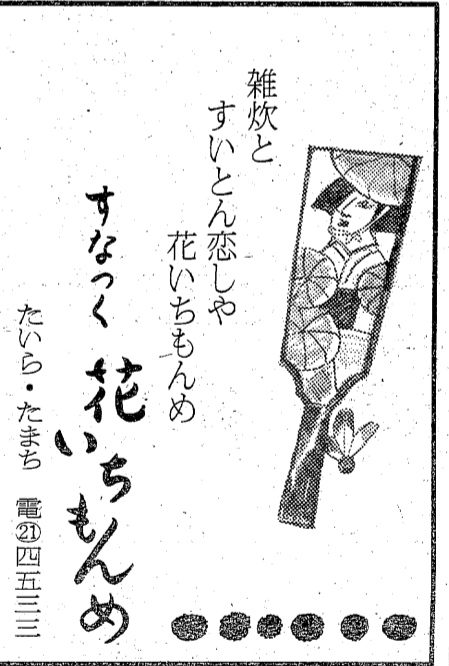 雑炊と
すいとん恋しや
花いちもんめ
すなっく 花いちもんめ
たいら・たまち 電㉑四五三三